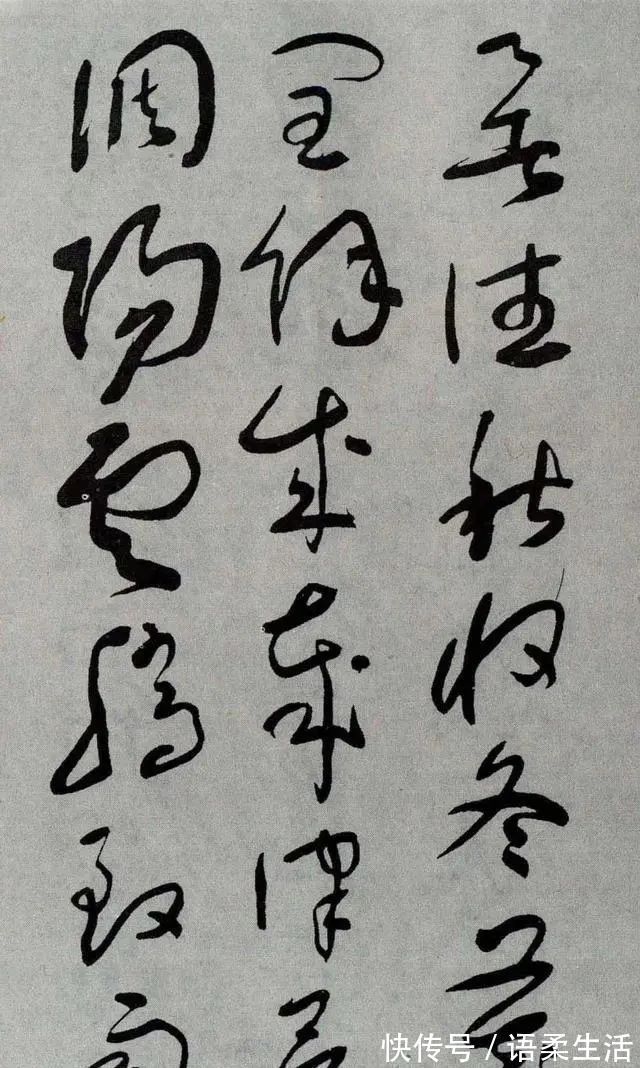 暑往秋收冬藏
閏餘成歲律呂
調陽雲騰致雨
快传号 / 语柔生活